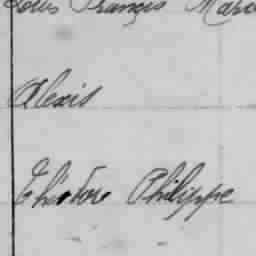 Louis François Marc
Alexis
Théodore Philippe